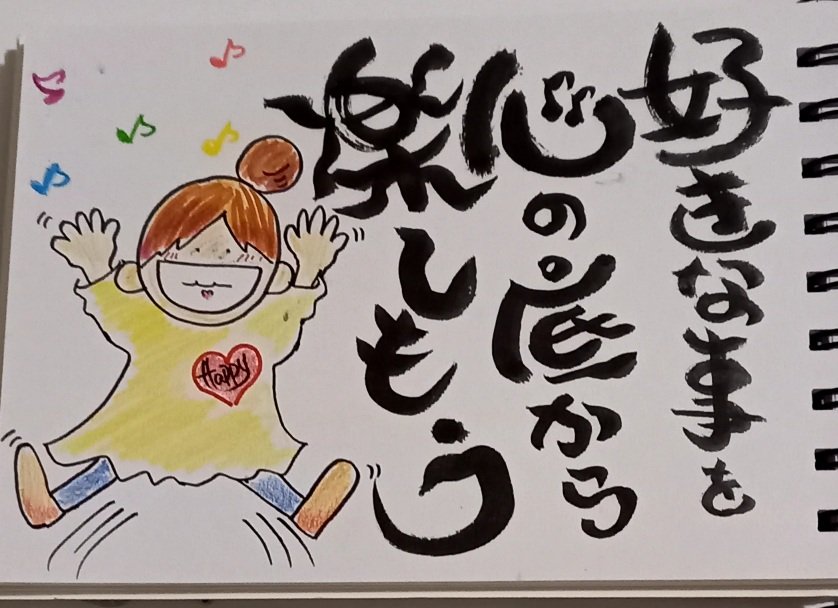 好きな事を
心の底から
楽しもう
Happy